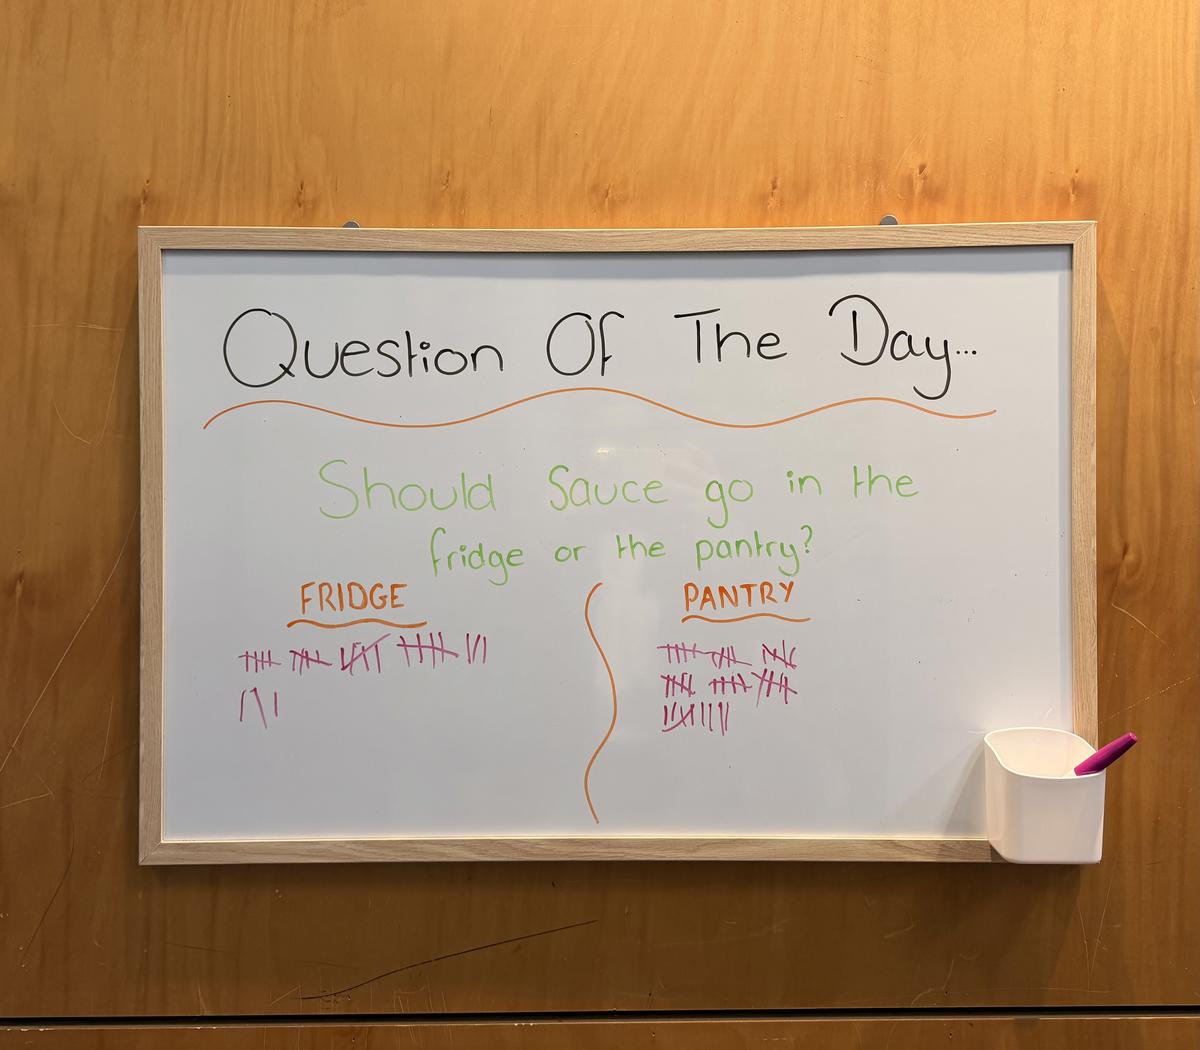 Question Of The Day...
Should Sauce go in the
fridge or the pantry?
FRIDGE
PANTRY